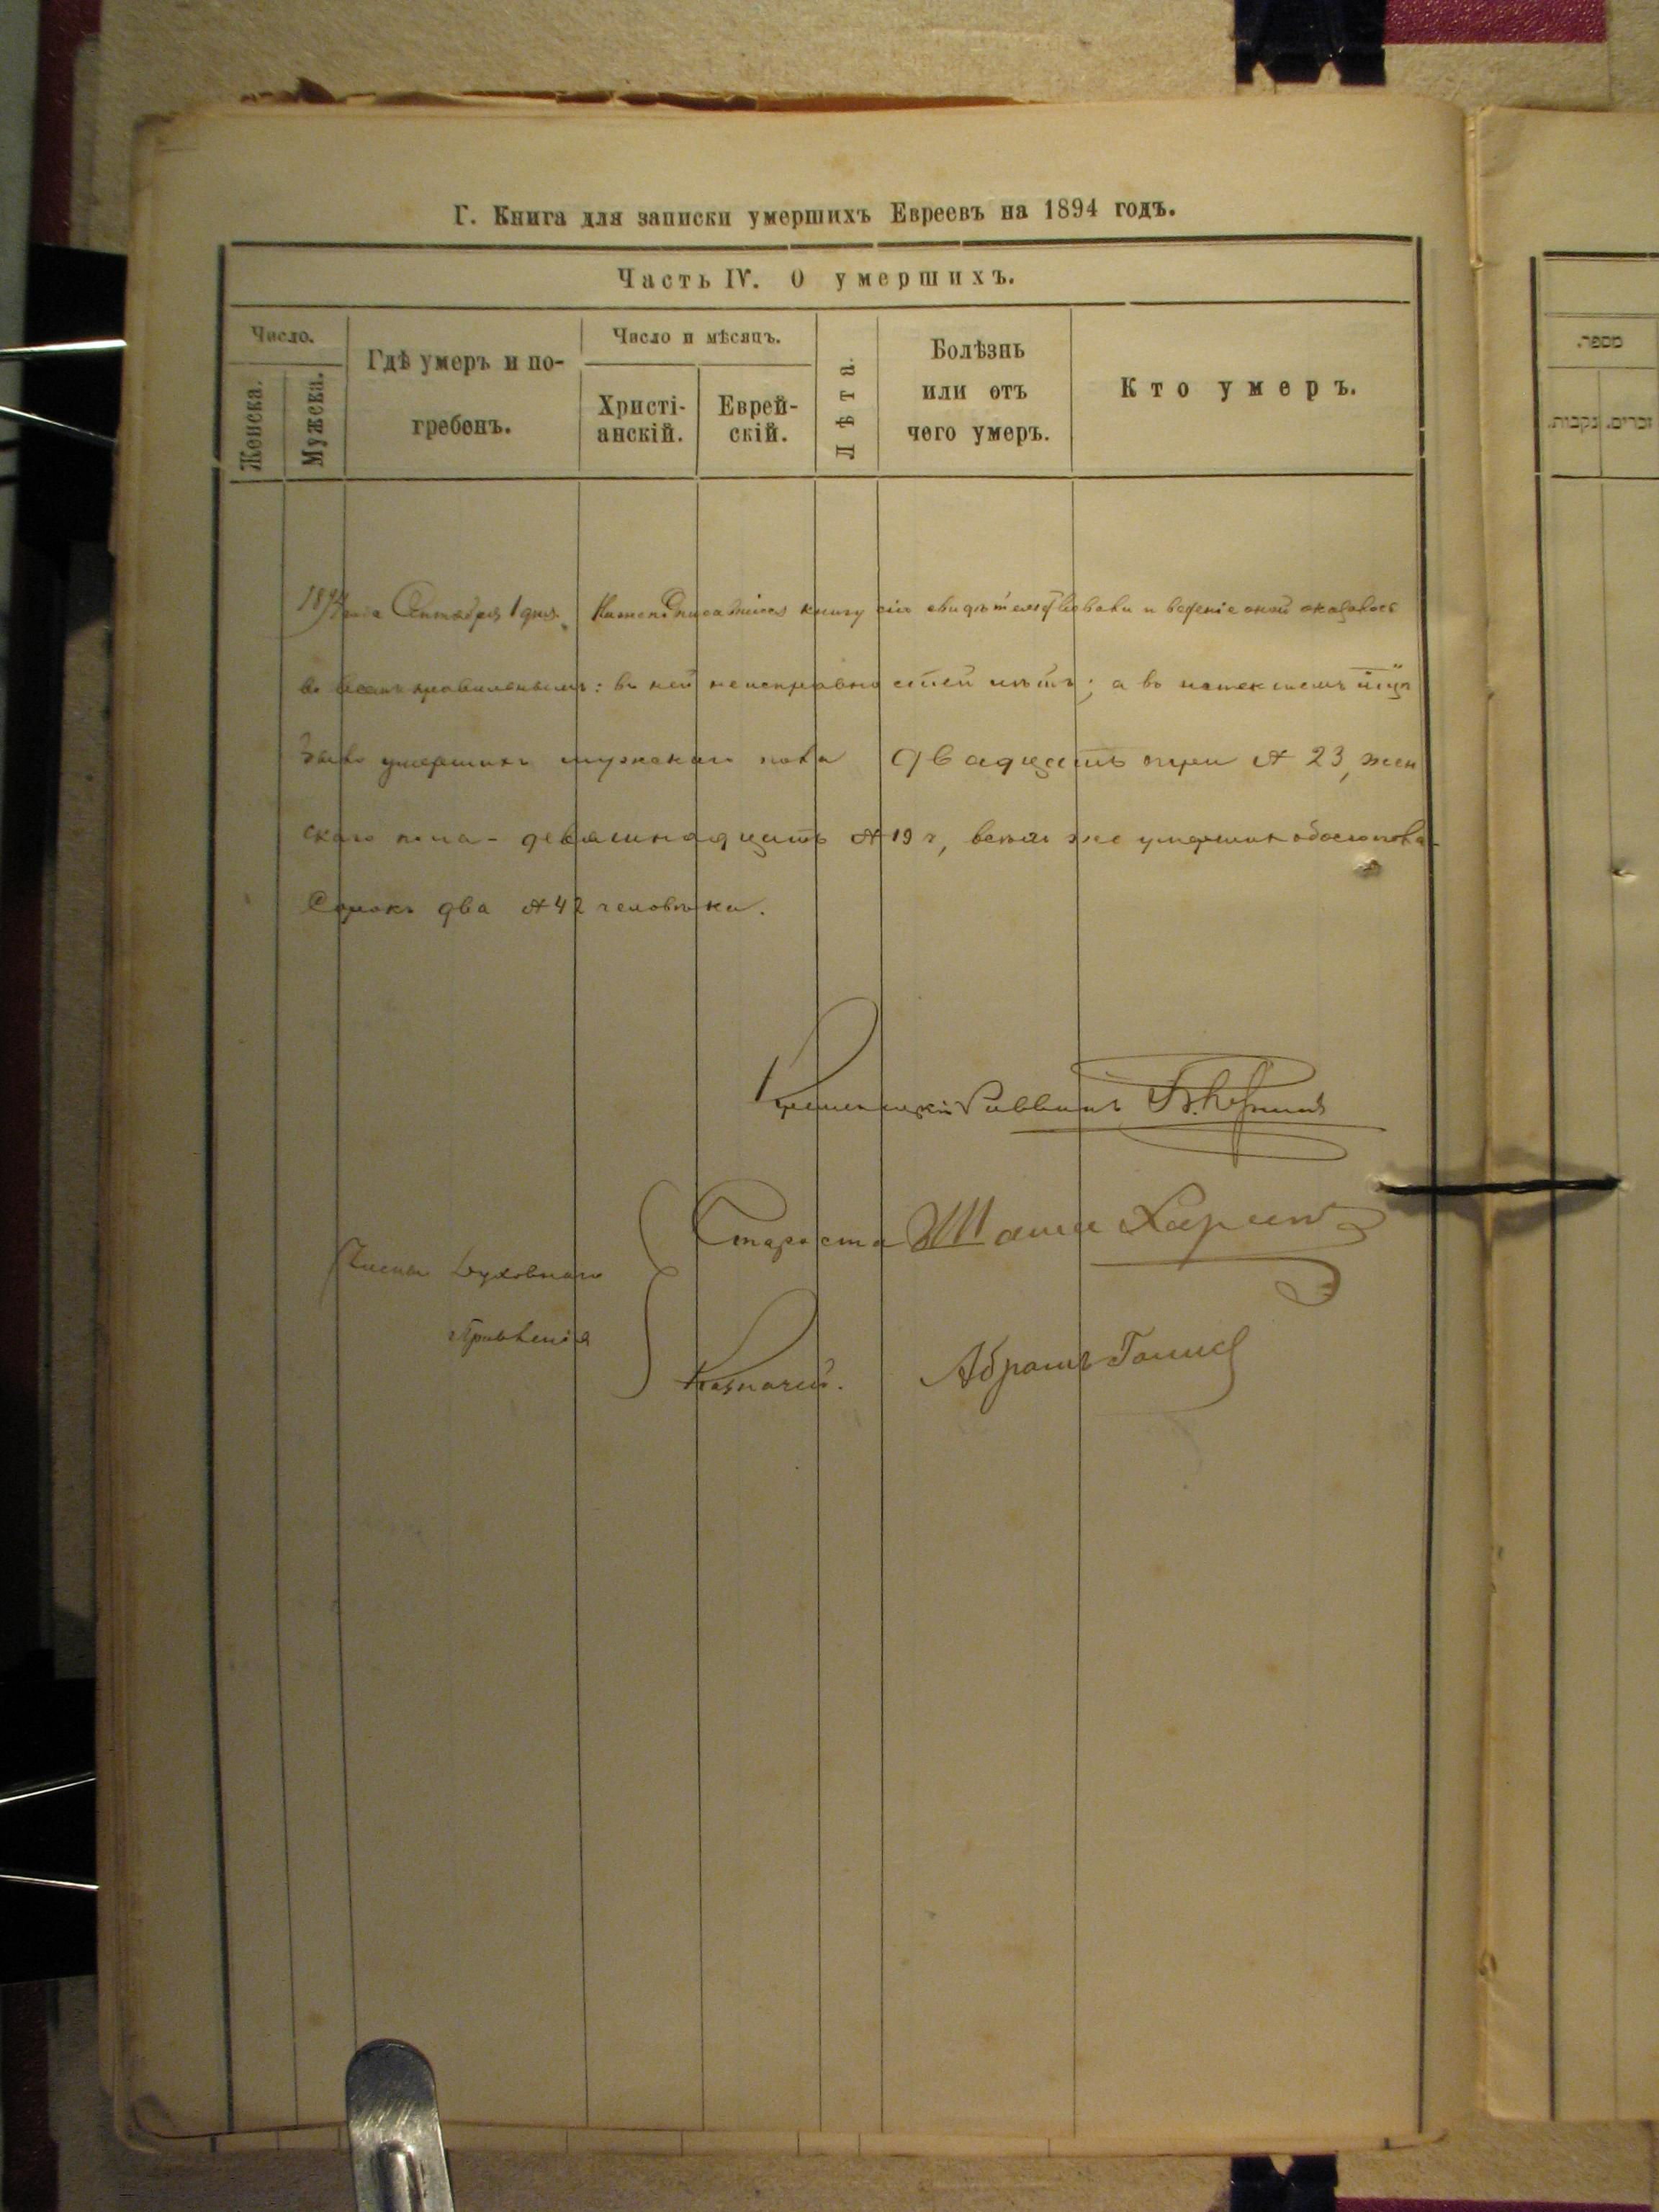 Г. Книга для записки умершихъ Евреевъ на 1894 годъ.
Часть IV. О умершихъ.
Число.
Женска.
Мужеска.
Гдѣ умеръ и по-
гребенъ.
Число и мѣсяцъ.
Христі-
анскій.
Еврей-
скій.
Лѣта.
Болѣзнь
или отъ
чего умеръ.
Кто умеръ.
1894 года Сентября 1 дня. Нижеподписавшіеся книгу сію свидѣтельствовали и веденіе оной оказалось
во всемъ правильнымъ: въ ней неисправностей нѣтъ; а въ истекшемъ м-цѣ
было умершихъ мужскаго пола двадцать три № 23, жен
скаго пола - девятнадцать № 19 ч, всѣхъ же умершихъ обоего пола -
Сорокъ два № 42 человѣка.
Раввинъ
Члены Духовнаго
Правленія
Староста
Казначей. Абрамъ
מספר.
זכרים.
נקבות.